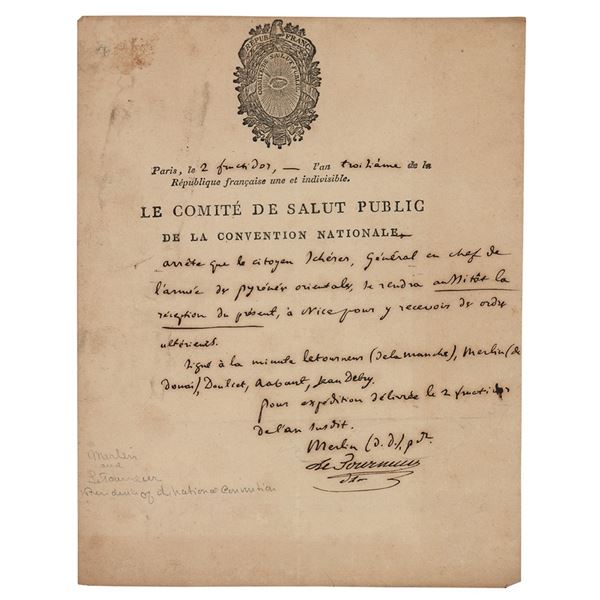 RÉPUB. FRANÇ.
COMITÉ DE SALUT PUBLIC
Paris, le 2 fructidor, — l'an troisième de la
République française une et indivisible.
LE COMITÉ DE SALUT PUBLIC
DE LA CONVENTION NATIONALE,
arrête que le citoyen Schérer, Général en chef de
l'armée des pyrénées orientales, se rendra aussitôt la
réception du présent, à Nice pour y recevoir des ordres
ultérieurs.
Signé à la minute Letourneur (de la manche), Merlin (de
Douai), Doulcet, Rabaut, Jean Debry.
pour expédition délivrée le 2 fructidor
de l'an susdit.
Merlin (d. D.), pdt.
Le Tourneur
Merlin
and
Letourneur
President of d National Convention